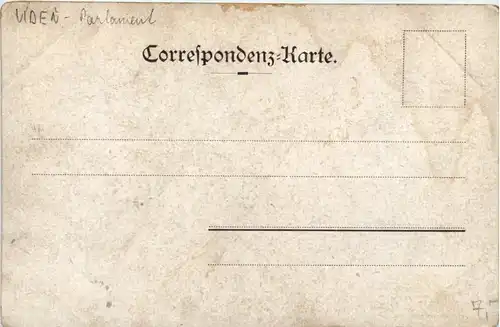 VIDEŇ - Parlament
Correspondenz-Karte.
7,-